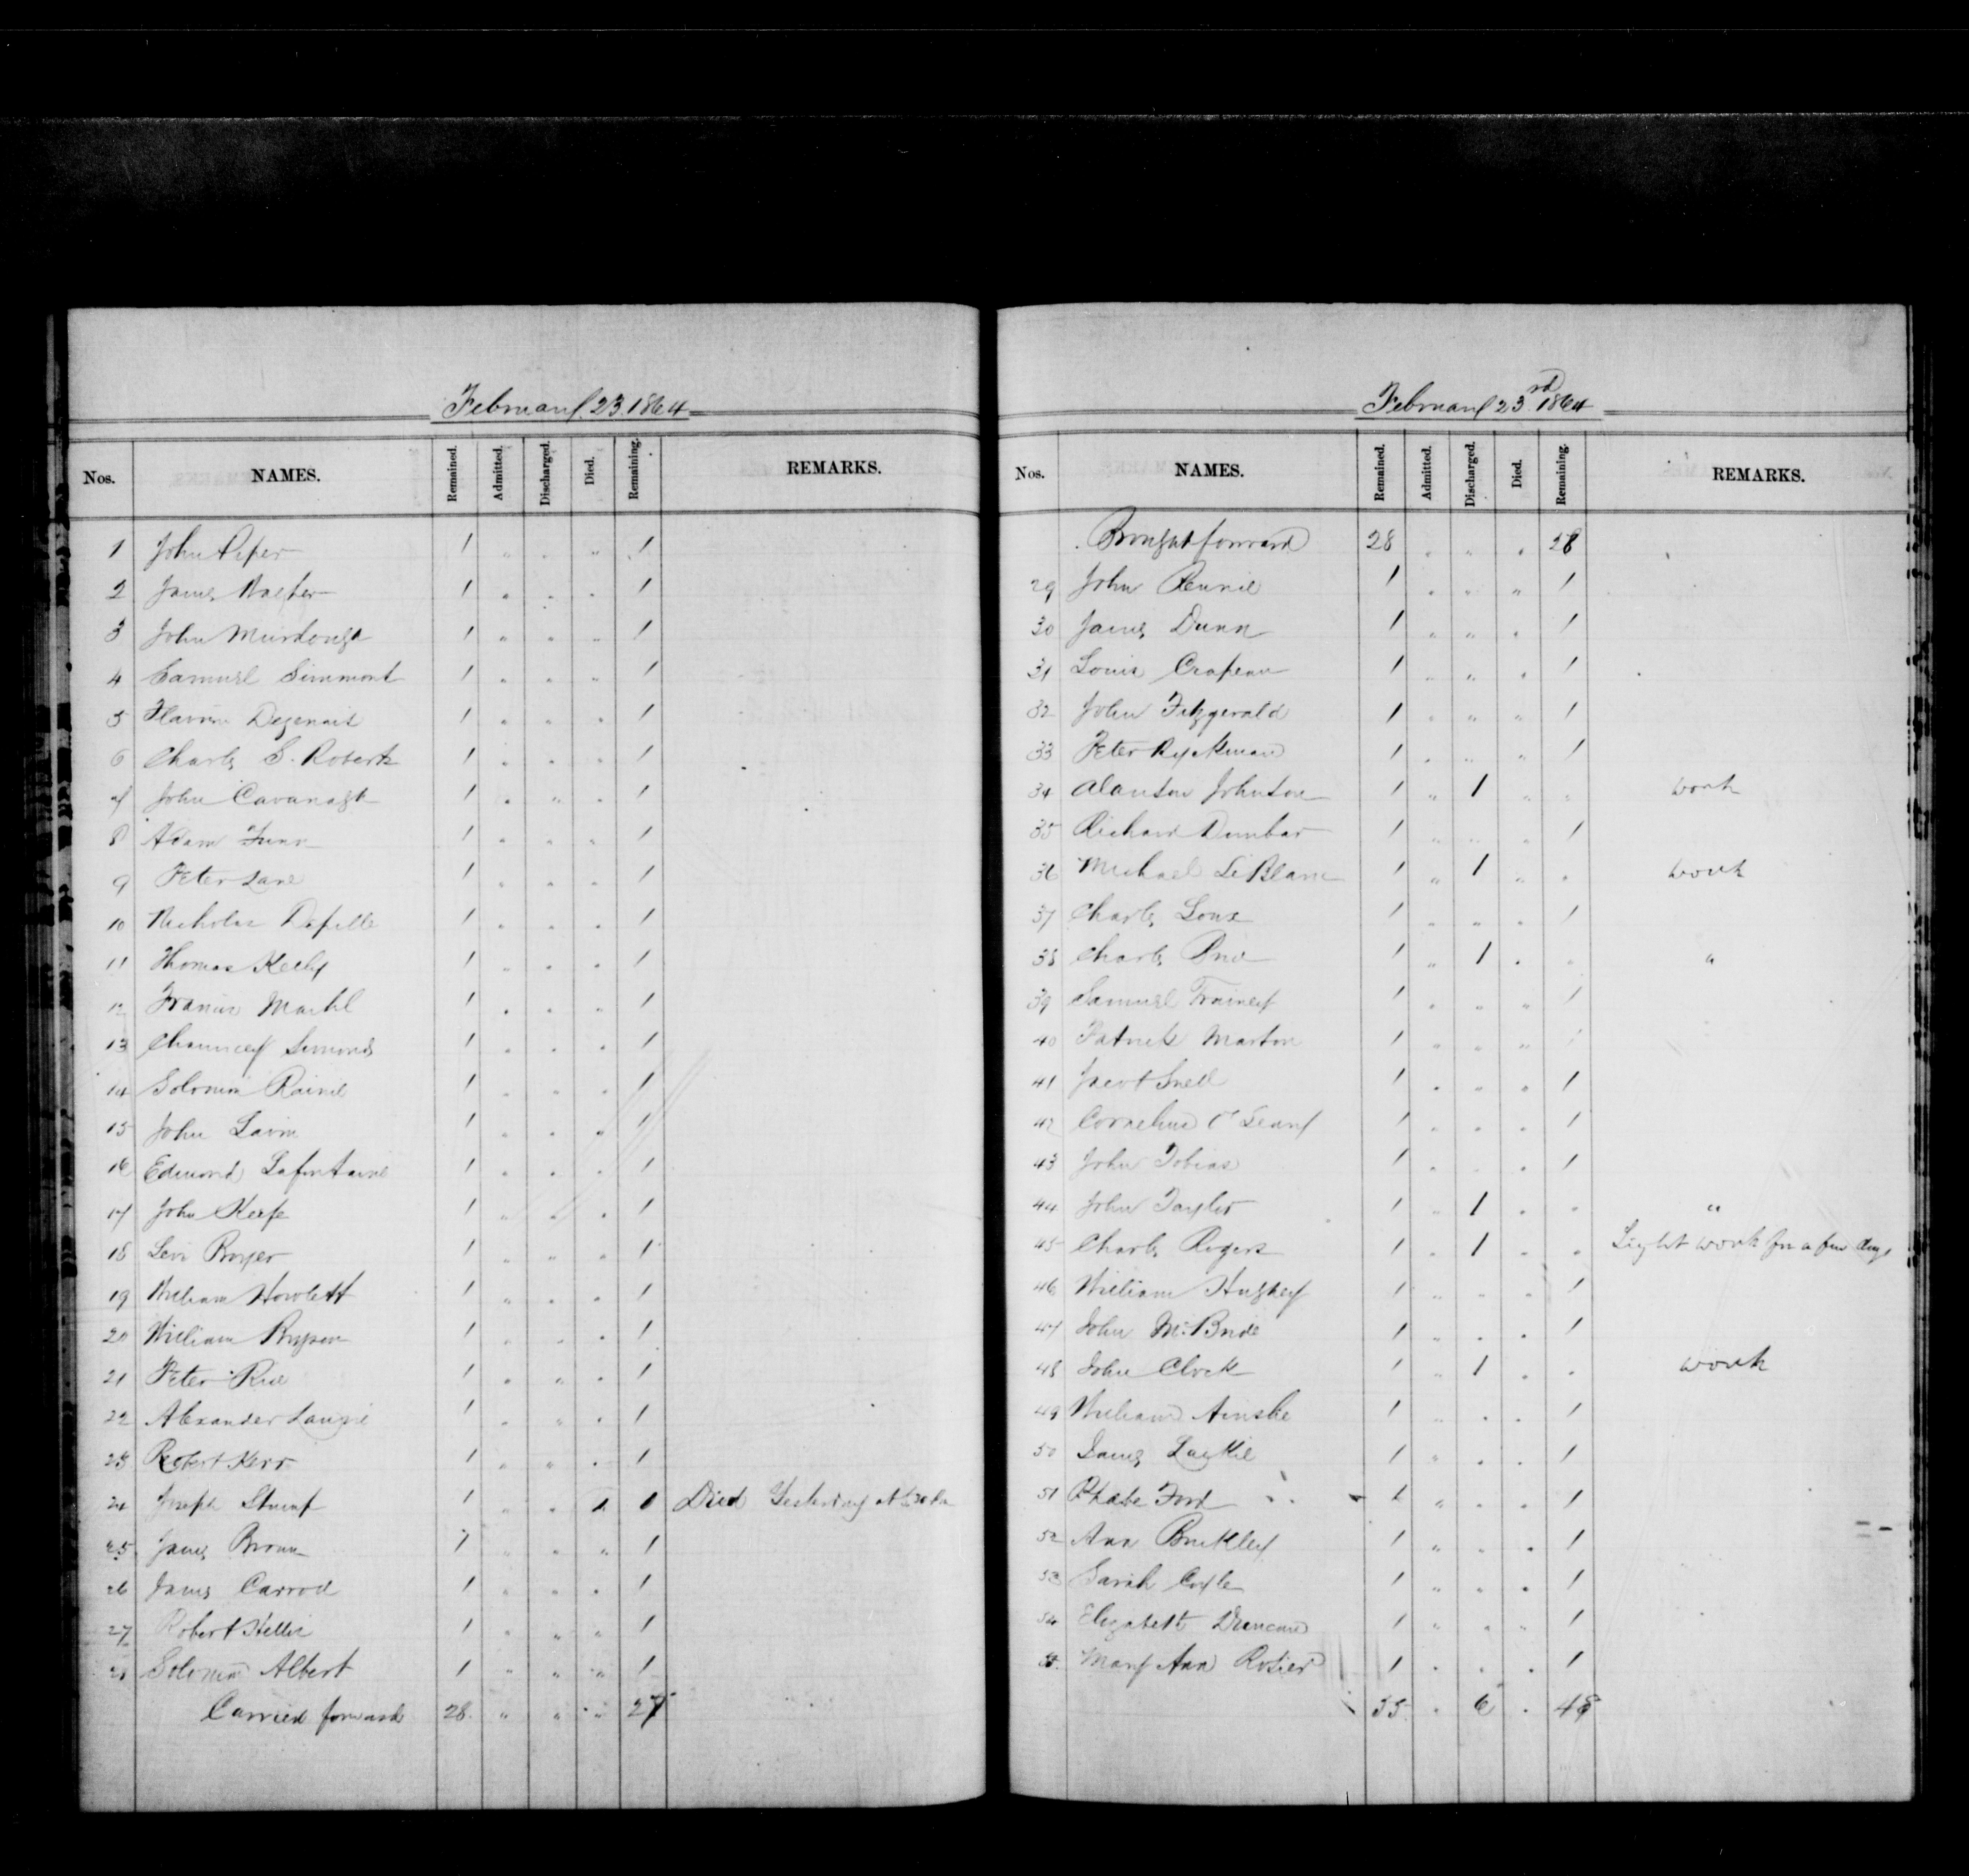 February 23. 1864
Nos. NAMES. Remained. Admitted. Discharged. Died. Remaining. REMARKS.
1 John Piper 1 " . " 1
2 James 1 . . . 1
3 John Murdough 1 " . " 1
4 Samuel Simmont 1 . . " 1
5 Degenais 1 " " . 1
6 Charles S. Roberts 1 . . . 1
7 John Cavanagh 1 . " . 1
8 Adam 1 . . . 1
9 Peter Lane 1 . . . 1
10 Nicholas 1 . . . 1
11 Thomas Kelly 1 " . . 1
12 Francis 1 . . . 1
13 Chauncey Simonds 1 . . . 1
14 Solomon 1 . " . 1
15 John 1 . . . 1
16 Edmond Lafontaine 1 . . . 1
17 John Keefe 1 . . . 1
18 Levi Boyer 1 . " . 1
19 William Howlett 1 . . . 1
20 William 1 . . . 1
21 Peter 1 . " . 1
22 Alexander 1 . " . 1
23 Robert Kerr 1 . " . 1
24 Joseph 1 . . 1 0 Died Yesterday at
25 James Brown 1 " . " 1
26 James Carroll 1 . . . 1
27 Robert 1 . " " 1
28 Solomon Albert 1 " " " 1
Carried forward 28 " " " 27
February 23rd 1864
Nos. NAMES. Remained. Admitted. Discharged. Died. Remaining. REMARKS.
Brought forward 28 . " . 28
29 John Rennie 1 . . " 1
30 James Dunn 1 " " . 1
31 Louis Crapeau 1 " " . 1
32 John Fitzgerald 1 . " " 1
33 Peter Ryckman 1 . " " 1
34 Alanson Johnson 1 " 1 " " work
35 Richard Dunbar 1 " " . 1
36 Michael LeBlanc 1 " 1 " . work
37 Charles 1 . " . 1
38 Charles 1 " 1 . . "
39 Samuel Trainey 1 . " " 1
40 Patrick Marton 1 " . " 1
41 Jacob Snell 1 . " . 1
42 Cornelius O'Leary 1 . . . 1
43 John Tobias 1 . . . 1
44 John Taylor 1 " 1 . . "
45 Charles Rogers 1 . 1 . . Light work for a few days
46 William Hughey 1 " . . 1
47 John McBride 1 " . . 1
48 John Clock 1 " 1 . . work
49 William Ainslie 1 " . . 1
50 James Lackie 1 " . . 1
51 Phoebe Ford 1 " . . 1
52 Ann Buckley 1 " . . 1
53 Sarah Coyle 1 " . . 1
54 Elizabeth Duncan 1 " . " 1
55 Mary Ann Rosier 1 . . . 1
55 . 6 . 48